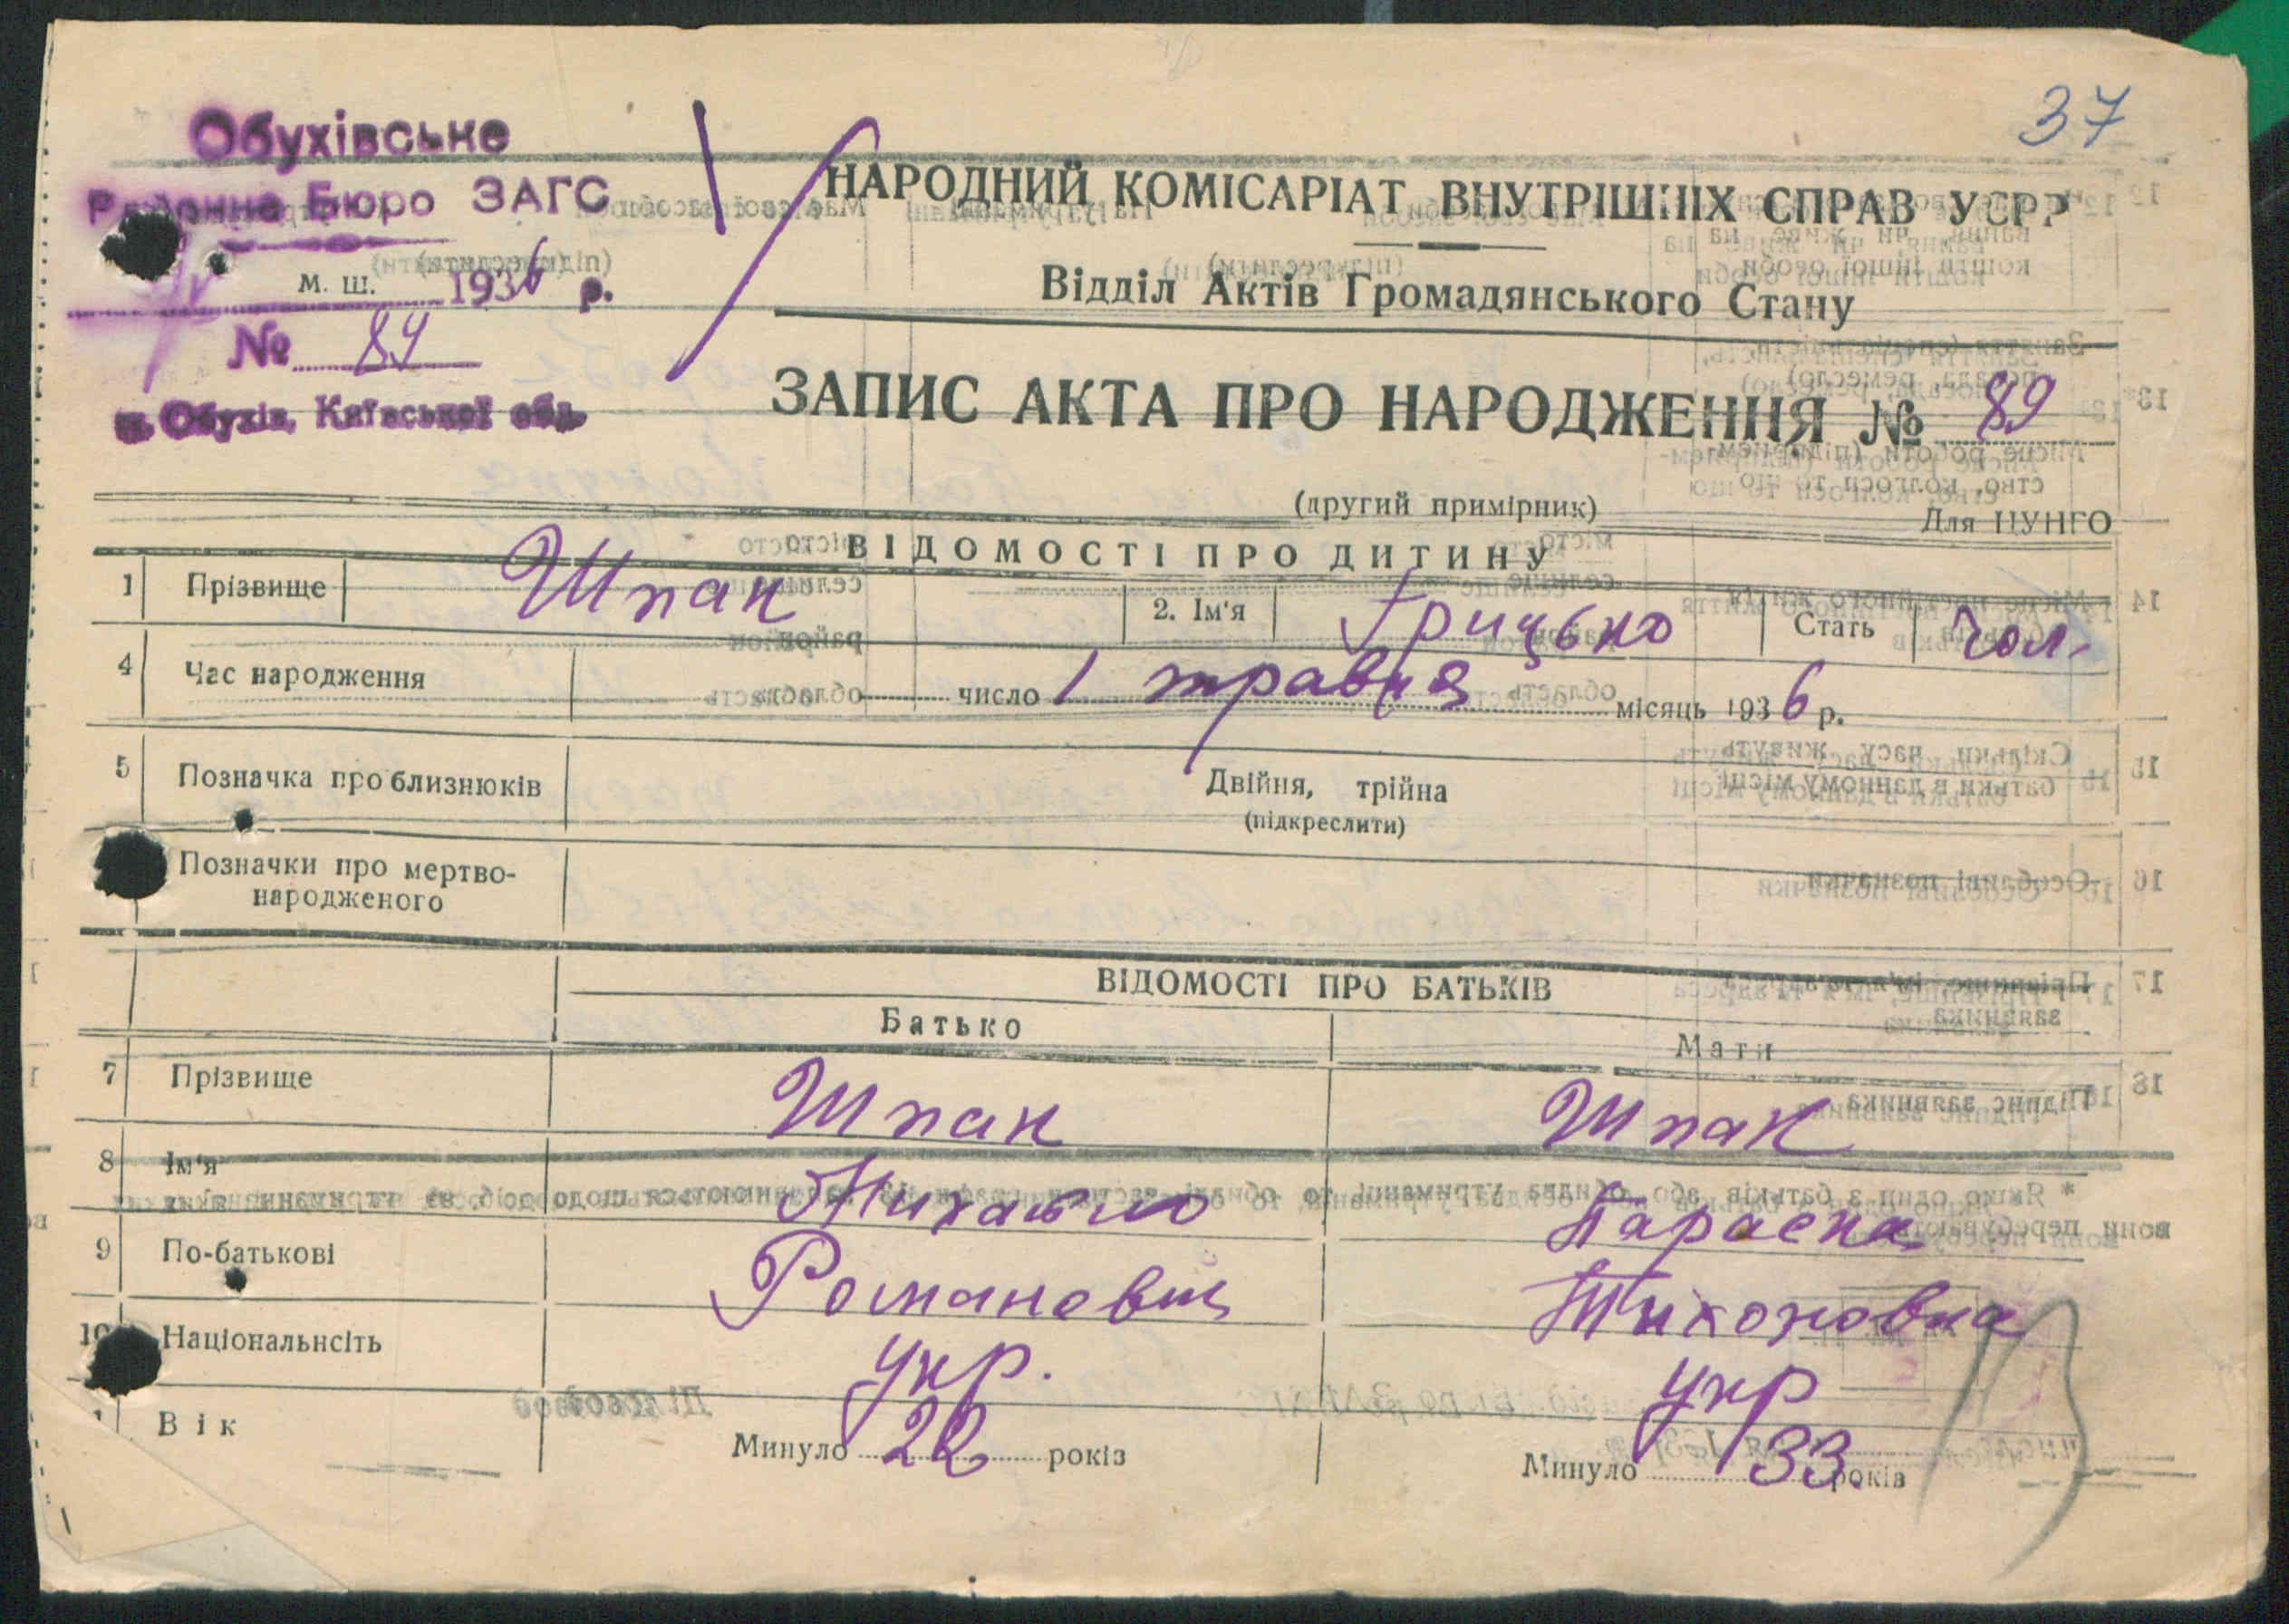 37
Обухівське
Районне Бюро ЗАГС
м. ш. 1936 р.
№ 89
м. Обухів, Київської обл.
НАРОДНИЙ КОМІСАРІАТ ВНУТРІШНІХ СПРАВ УСРР
Відділ Актів Громадянського Стану
ЗАПИС АКТА ПРО НАРОДЖЕННЯ № 89
(другий примірник)
Для ЦУНГО
ВІДОМОСТІ ПРО ДИТИНУ
1 Прізвище Шпак 2. Ім'я Грицько Стать Чол.
4 Час народження число 1 травня місяць 1936 р.
5 Позначка про близнюків Двійня, трійна
(підкреслити)
Позначки про мертво-
народженого
ВІДОМОСТІ ПРО БАТЬКІВ
Батько Мати
7 Прізвище Шпак Шпак
8 Ім'я Михайло Параска
9 По-батькові Романович Тихоновна
10 Національнсіть укр. укр
Вік Минуло 22 років Минуло 33 років